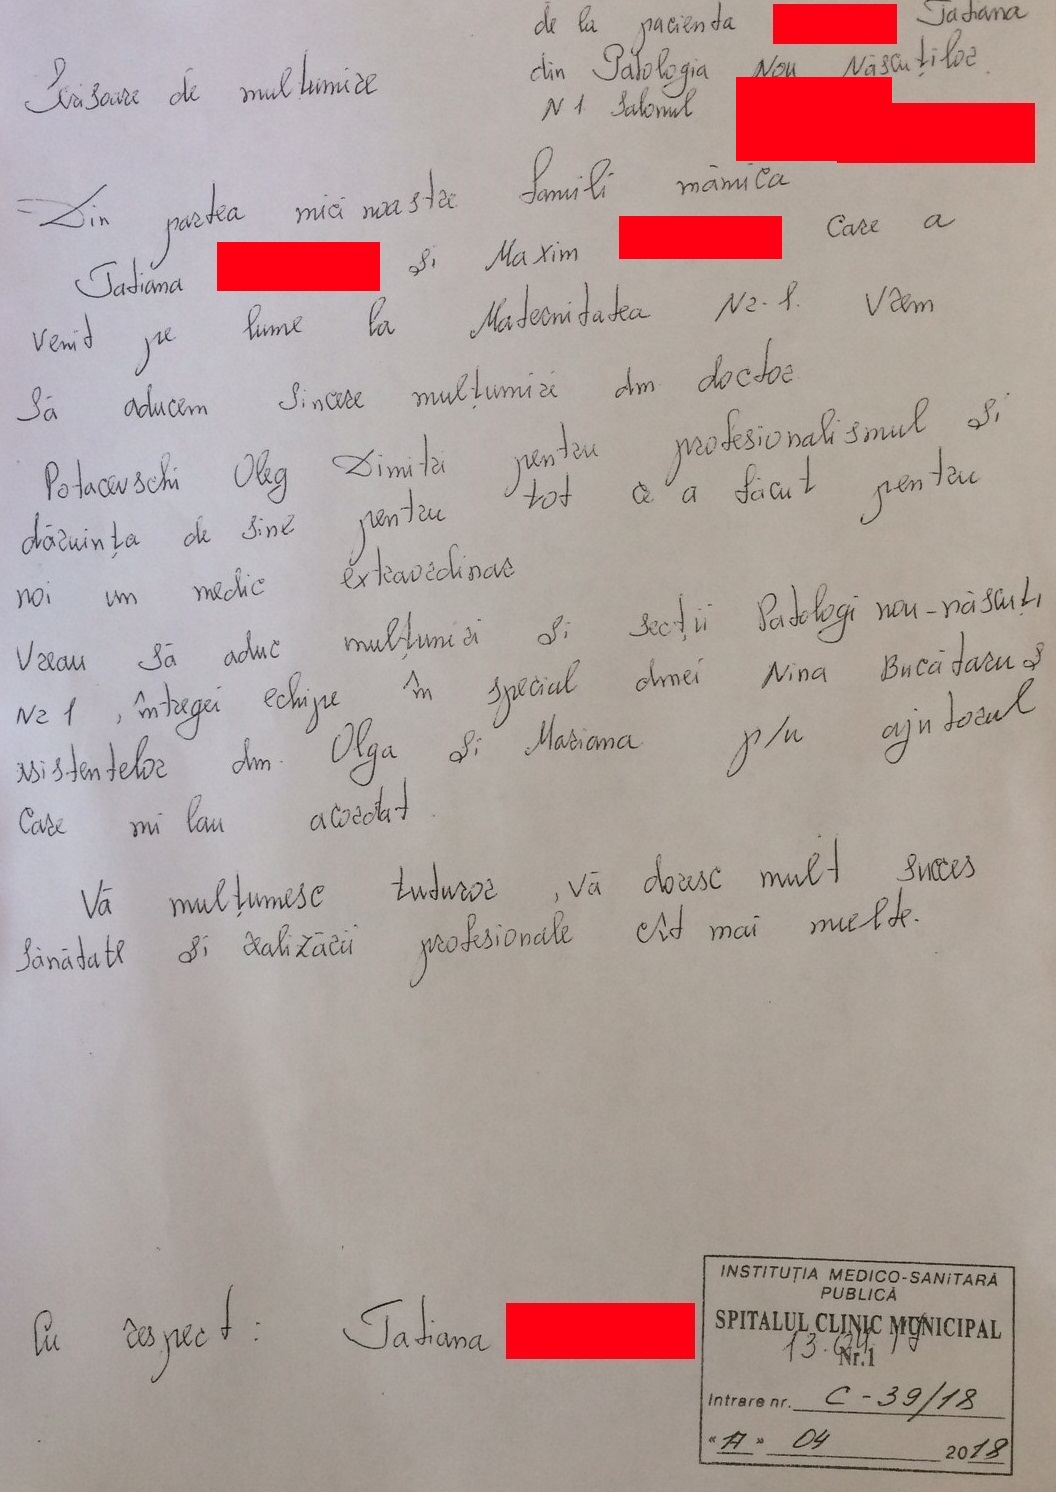 de la pacienta Tatiana
din Patologia Nou Născuților
N 1 Salonul
Scrisoare de mulțumire
Din partea mici noastre famili mămica
Tatiana și Maxim care a
venit pe lume la Maternitatea Nr. 1. Vrem
să aducem sincere mulțumiri dm. doctor
Potacevschi Oleg Dimitri pentru profesionalismul și
dăruința de sine pentru tot ce a făcut pentru
noi un medic extraordinar
Vreau să aduc mulțumiri și secții Patologi nou-născuți
Nr 1, întregei echipe în special dmei Nina Bucătaru și
asistentelor dm. Olga și Mariana p/u ajutorul
care mi lau acordat.
Vă mulțumesc tuturor, vă doresc mult succes
sănătate și realizării profesionale cît mai multe.
Cu respect: Tatiana
INSTITUȚIA MEDICO-SANITARĂ
PUBLICĂ
SPITALUL CLINIC MUNICIPAL
Nr.1
Intrare nr. C-39/18
« » 04 2018